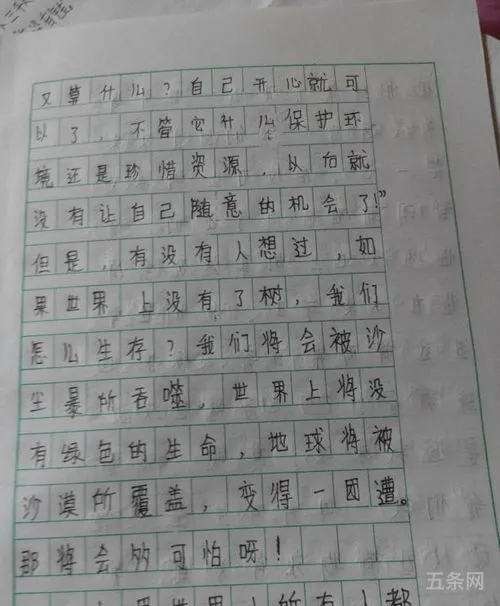 又算什么?自己开心就可
以了,不管它什么保护环
境还是珍惜资源,以后就
没有让自己随意的机会了!”
但是,有没有人想过,如
果世界上没有了树,我们
怎么生存?我们将会被沙
尘暴所吞噬,世界上将没
有绿色的生命,地球将被
沙漠所覆盖,变得一团遭。
那将会多可怕呀!
世界上所有人都
五条网